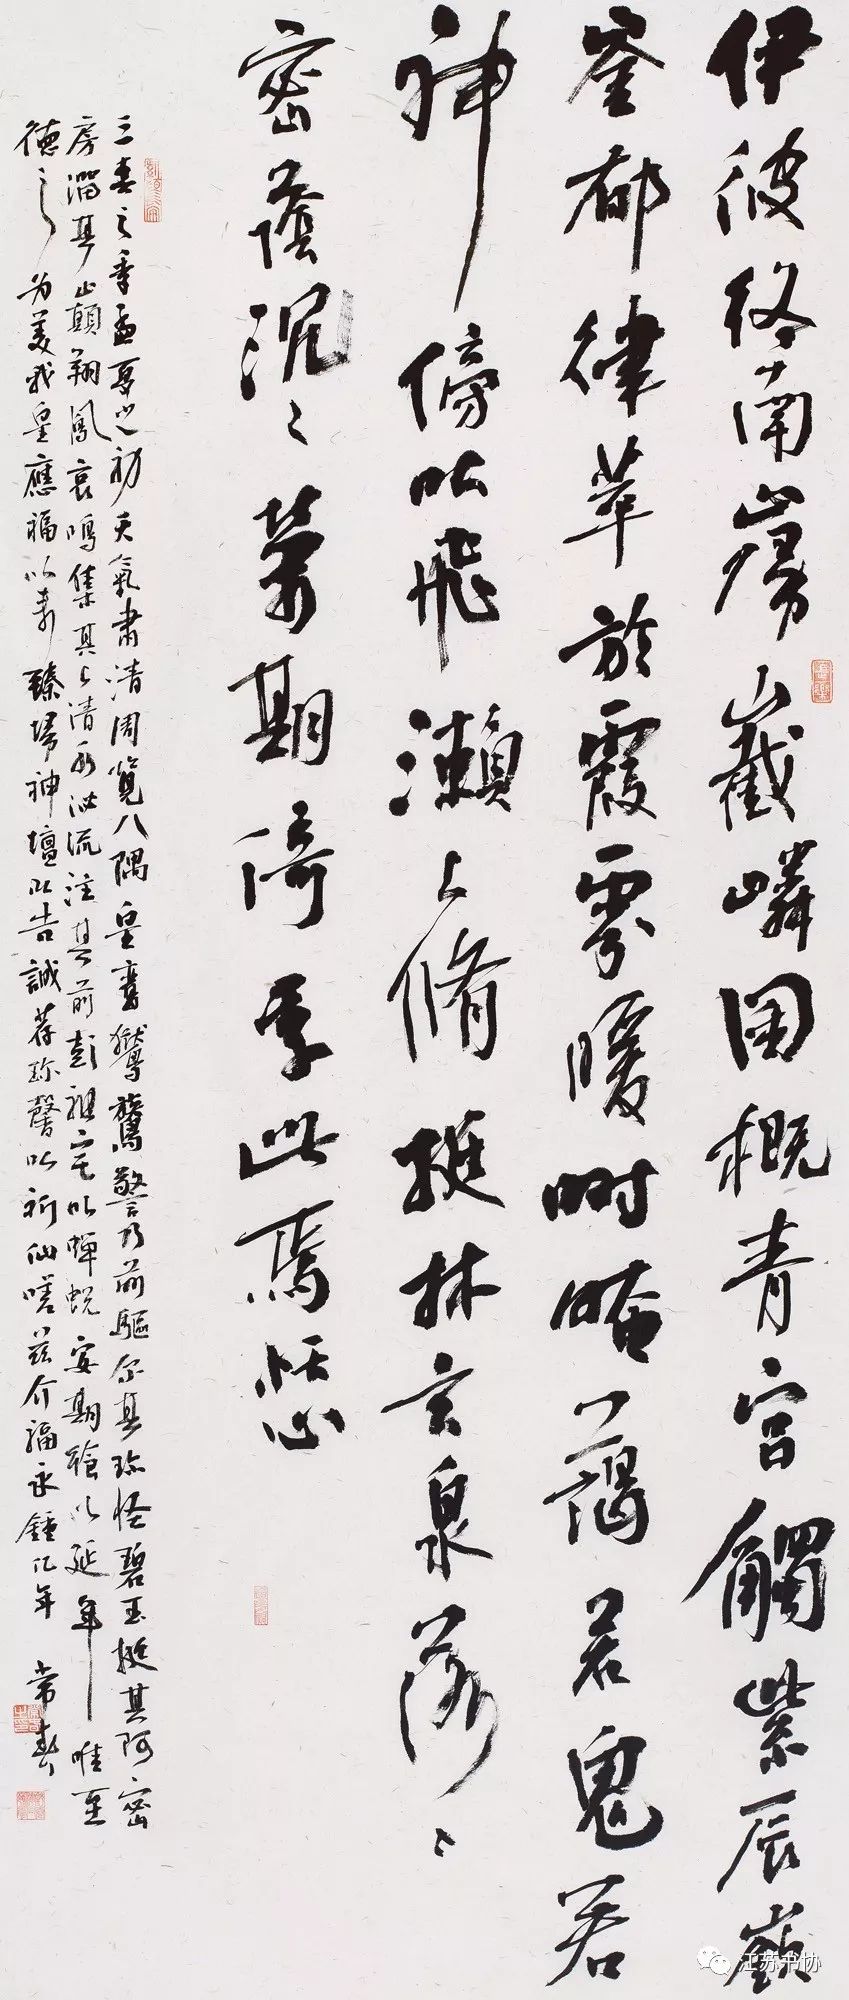 伊彼终南岿嶻嶙囷概青宫觸紫辰嶔
崟郁律萃於霞雰曖㫲晻藹若鬼若
神傍吐飛瀨上脩挺林玄泉落〻
密蔭沉〻榮期绮季此焉恬心
三春之季孟夏之初天氣肃清周覽八隅皇鸞鸑鷟警乃前驅尔其珍怪碧玉挺其阿密
房溜其巔翔鳳哀鳴集其上清水泌流注其前彭祖宅以蝉蜕安期飨以延年唯至
德之为美我皇應福以来臻埽神壇以告誠荐珍馨以祈仙嗟兹介福永鍾亿年 常春
江苏书协